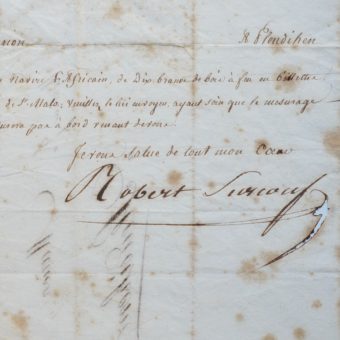 non A Pleudihen
Navire L'Africain, de dix brasse de bois à feu en billettes
de St. Malo, veuillez le lui envoyer, ayant soin que le mesurage
pas à bord venant de vous
Je vous salue de tout mon Cœur
Robert Surcouf